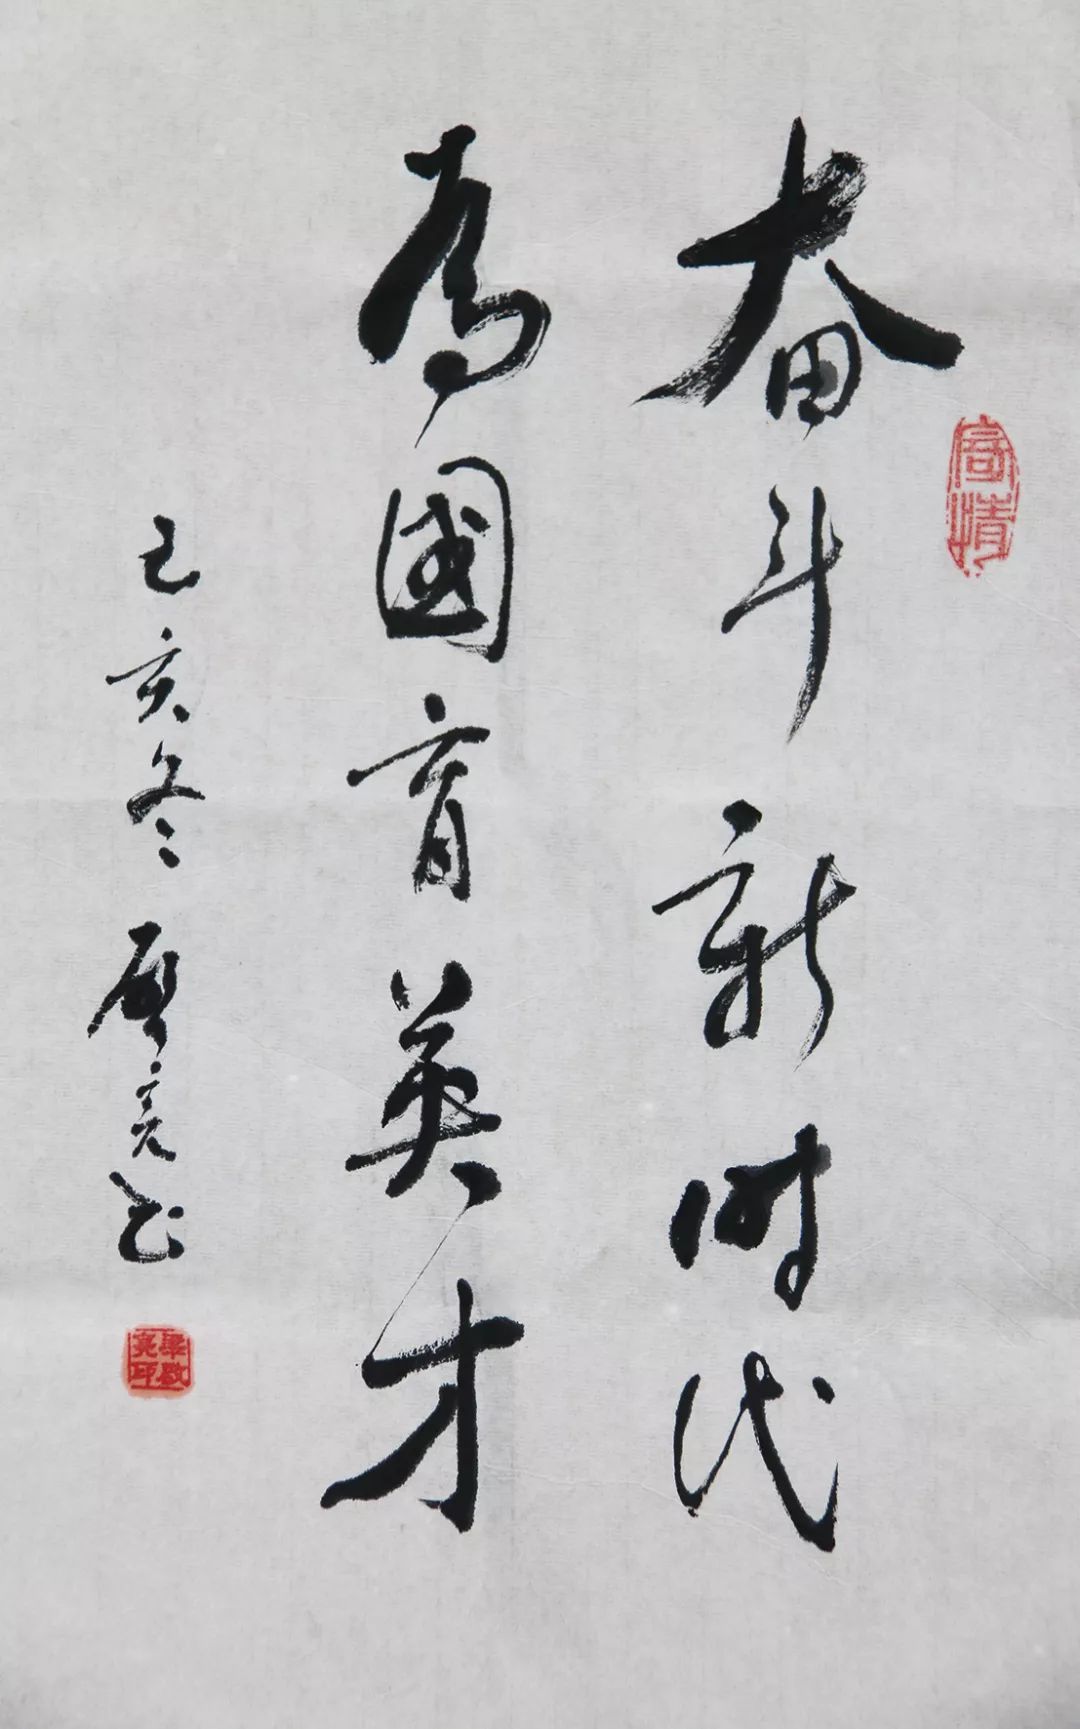 奋斗新时代
為國育英才
己亥冬 啟亮书